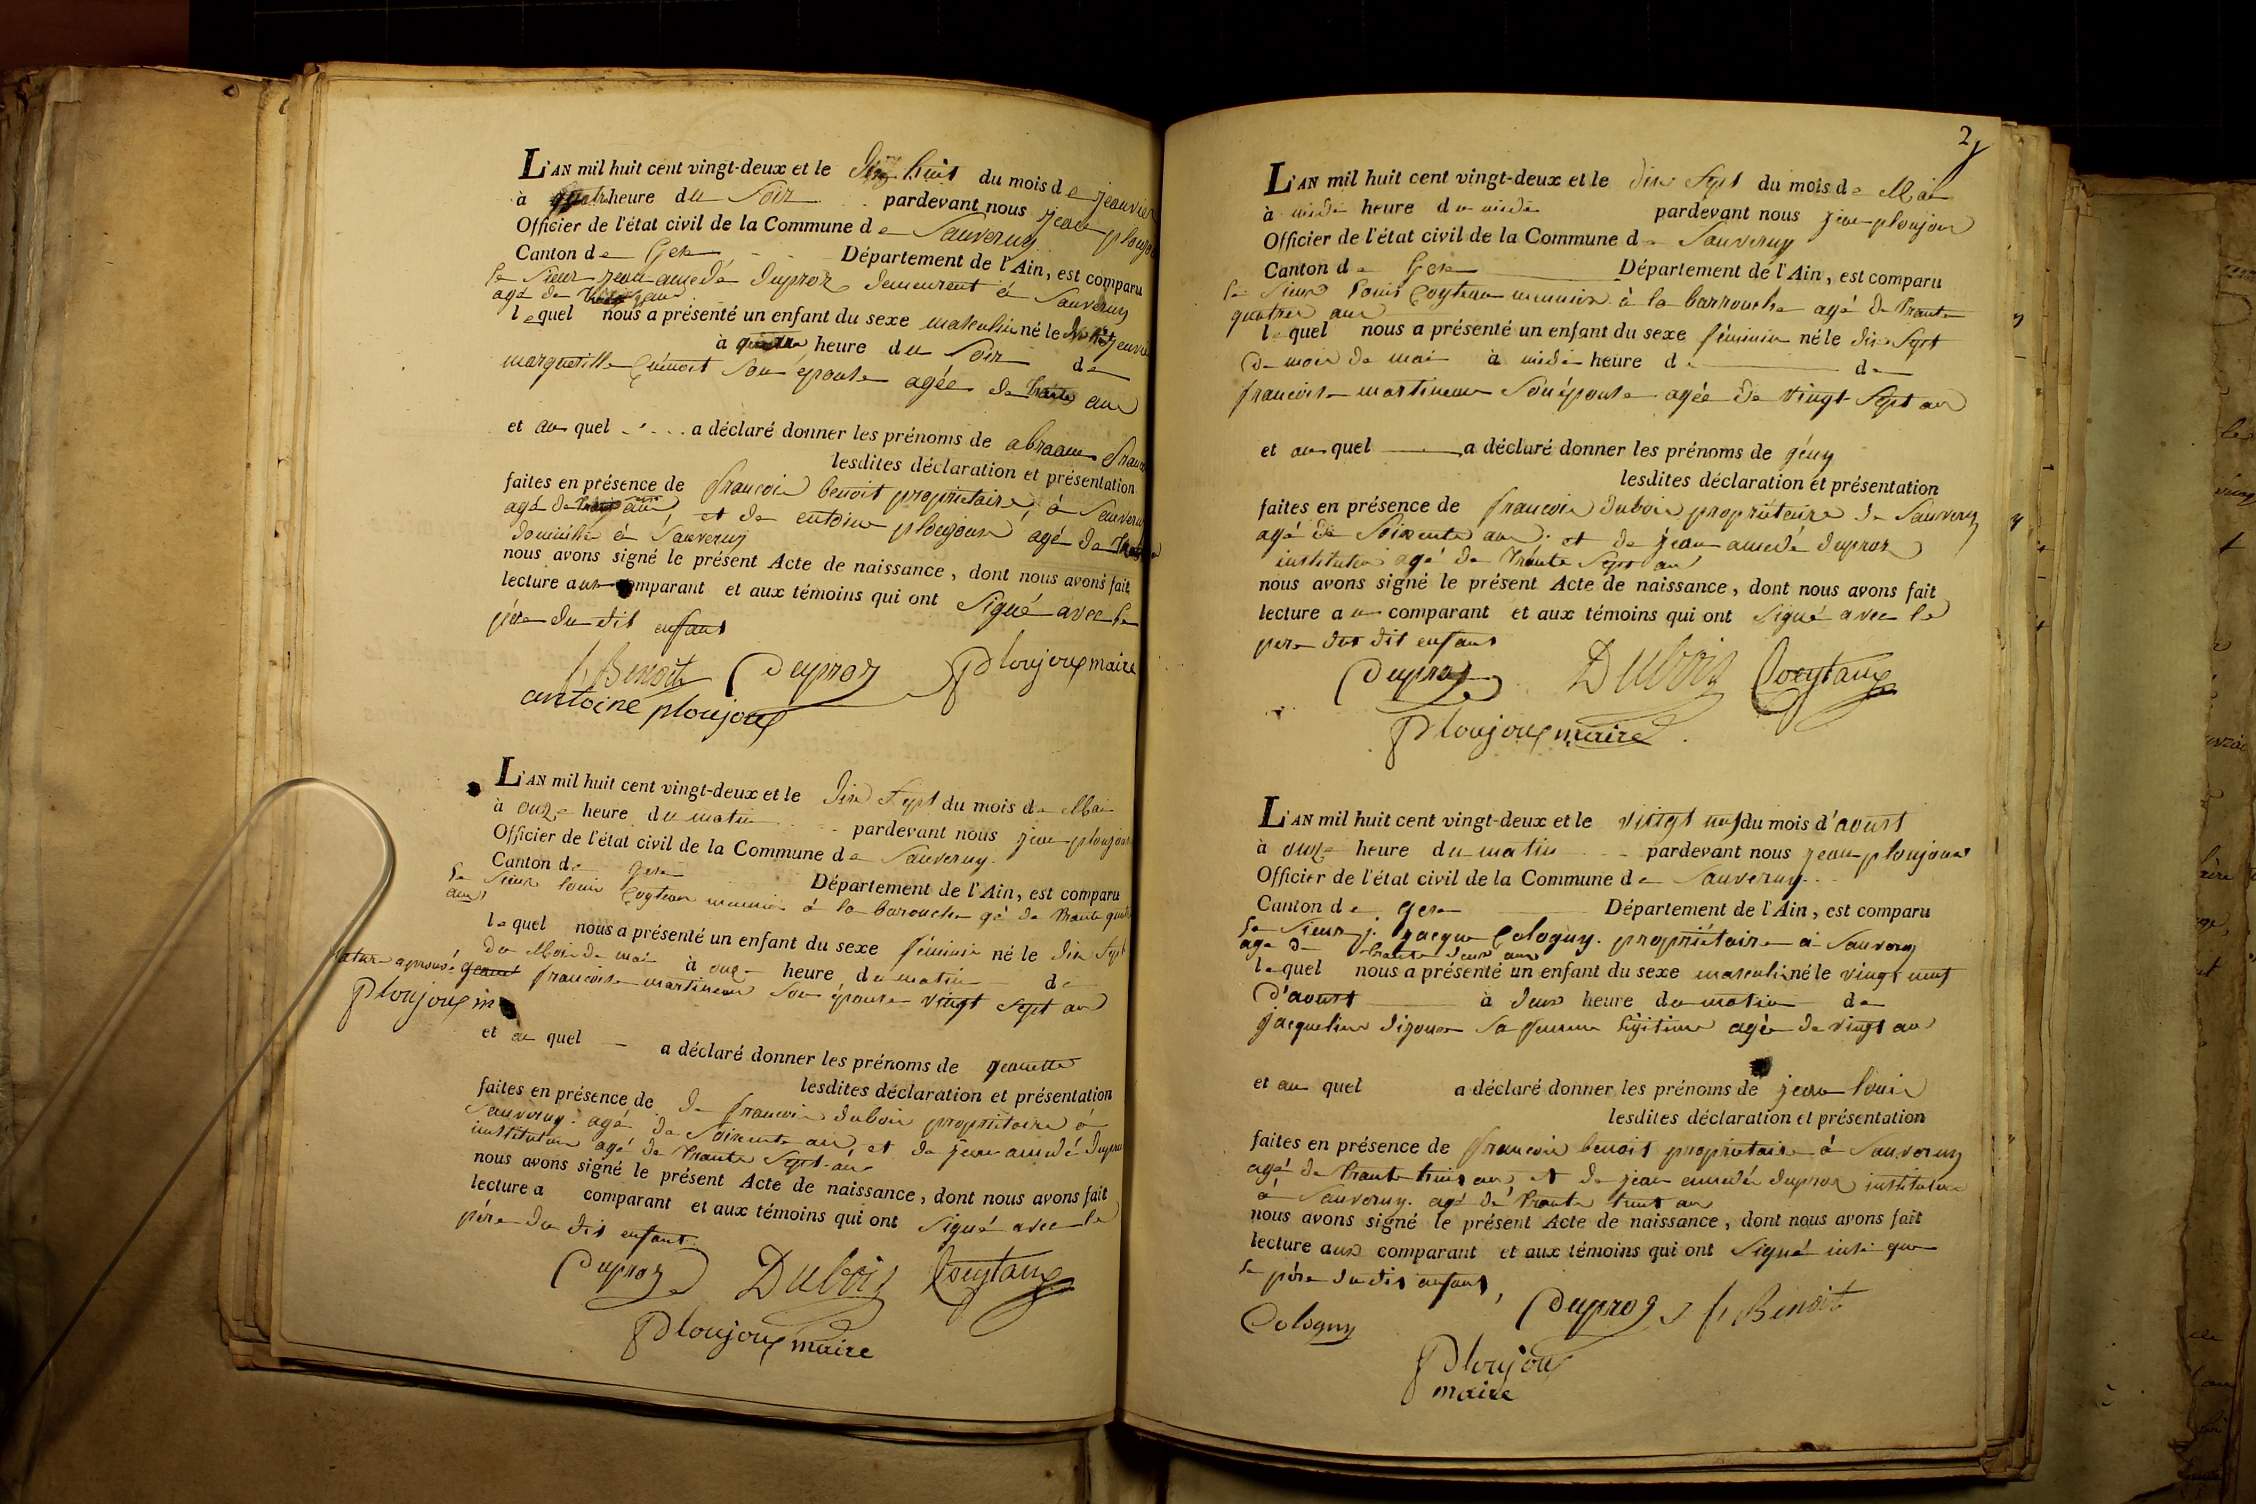 L'AN mil huit cent vingt-deux et le dix huit du mois de jeanvier
à heure du Soir pardevant nous jean ploujoux
Officier de l'état civil de la Commune de Sauverny
Canton de Gex Département de l'Ain, est comparu
le Sieur jean amedé duproz demeurent à Sauverny
agé de ans
lequel nous a présenté un enfant du sexe masculin né le jeanvie
à heure du Soir de
margueritte Son épouse agée de ans
et au quel a déclaré donner les prénoms de abraam
lesdites déclaration et présentation
faites en présence de francois benoit propriétaire à Sauverny
agé de ans et de entoine ploujoux agé de
domicilié à Sauverny
nous avons signé le présent Acte de naissance, dont nous avons fait
lecture aux comparant et aux témoins qui ont Signé avec le
père du dit enfant
f. Benoit Duproz Ploujoux maire
antoine ploujoux
L'AN mil huit cent vingt-deux et le dix Sept du mois de Mai
à onze heure du matin pardevant nous jean ploujoux
Officier de l'état civil de la Commune de Sauverny
Canton de gex Département de l'Ain, est comparu
le Sieur louis Coytaux meunier à la barouche gé de trante quatre
ans
lequel nous a présenté un enfant du sexe féminin né le dix Sept
du Mois de mai à onze heure du matin de
francoise martineau Son épouse vingt Sept an
Ploujoux m
et au quel a déclaré donner les prénoms de jeanette
lesdites déclaration et présentation
faites en présence de de francois dubois propriétaire à
Sauverny agé de Soixente an et de jean amedé dupro
instituteur agé de trante Sept an
nous avons signé le présent Acte de naissance, dont nous avons fait
lecture a comparant et aux témoins qui ont Signé avec le
père du dit enfant
Duproz Dubois Coeytaux
Ploujoux maire
2
L'AN mil huit cent vingt-deux et le dix Sept du mois de Mai
à midi heure de midi pardevant nous jean ploujoux
Officier de l'état civil de la Commune de Sauverny
Canton de Gex Département de l'Ain, est comparu
le Sieur louis Coytaux meunier à la barrouche agé de trante
quatres ans
lequel nous a présenté un enfant du sexe féminin né le dix Sept
du mois de mai à midi heure d de
francoise martineau Son épouse agée de vingt Sept an
et au quel a déclaré donner les prénoms de
lesdites déclaration et présentation
faites en présence de francois dubois propriétaire de Sauverny
agé de Soixente ans et de jean amedé duproz
instituteur agé de trante Sept an
nous avons signé le présent Acte de naissance, dont nous avons fait
lecture au comparant et aux témoins qui ont Signé avec le
pere du dit enfant
Duproz Dubois Coeytaux
Ploujoux maire
L'AN mil huit cent vingt-deux et le vingt neuf du mois d'aoust
à onze heure du matin pardevant nous jean ploujoux
Officier de l'état civil de la Commune de Sauverny
Canton de gex Département de l'Ain, est comparu
le Sieur j. jacque Cologny propriétaire à Sauverny
agé de trante deux ans
lequel nous a présenté un enfant du sexe masculin né le vingt neuf
d'aoust à deux heure du matin de
jacqueline sa femme légitime agée de vingt an
et au quel a déclaré donner les prénoms de jean louis
lesdites déclaration et présentation
faites en présence de francois benoit propriétaire à Sauverny
agé de trante trois an et de jean amedée duproz instituteur
à Sauverny agé de trante huit an
nous avons signé le présent Acte de naissance, dont nous avons fait
lecture aux comparant et aux témoins qui ont Signé insi que
le père du dit enfant,
Duproz f. Benoit
Cologny
Ploujoux
maire